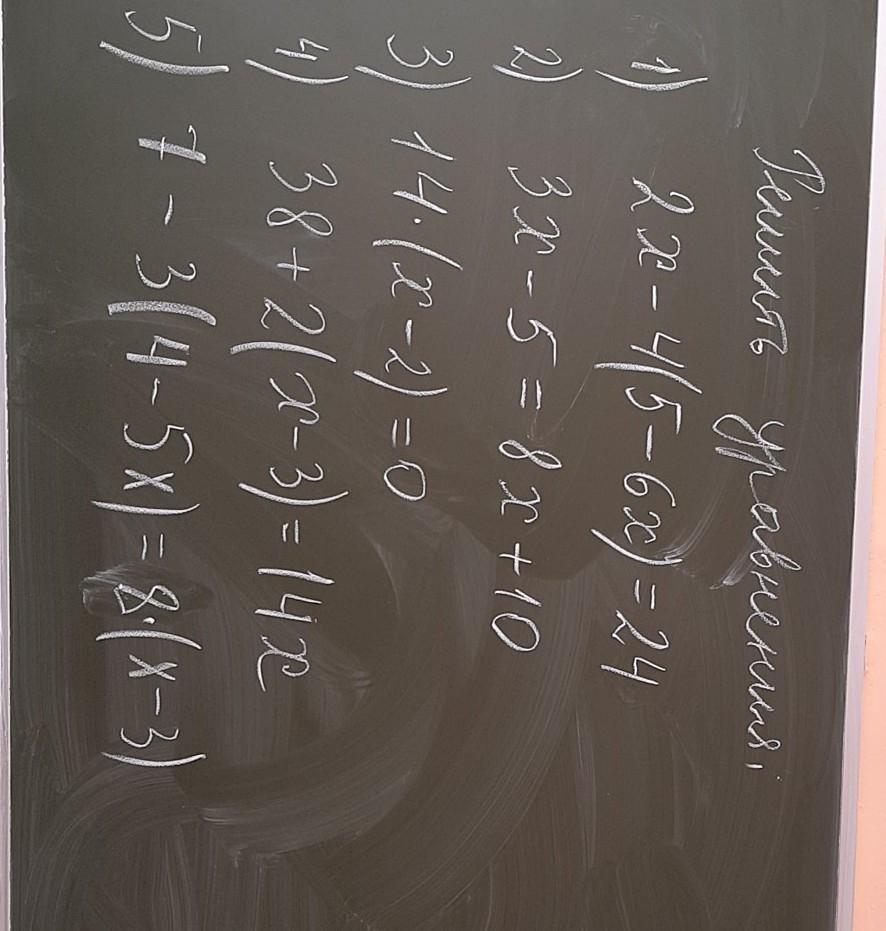 Решить уравнения:
1) 2x - 4(5 - 6x) = 24
2) 3x - 5 = 8x + 10
3) 14·(x - 2) = 0
4) 38 + 2(x - 3) = 14x
5) 7 - 3(4 - 5x) = 8·(x - 3)